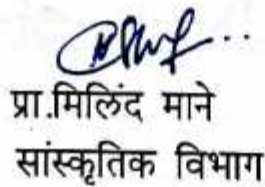 प्रा.मिलिंद माने
सांस्कृतिक विभाग